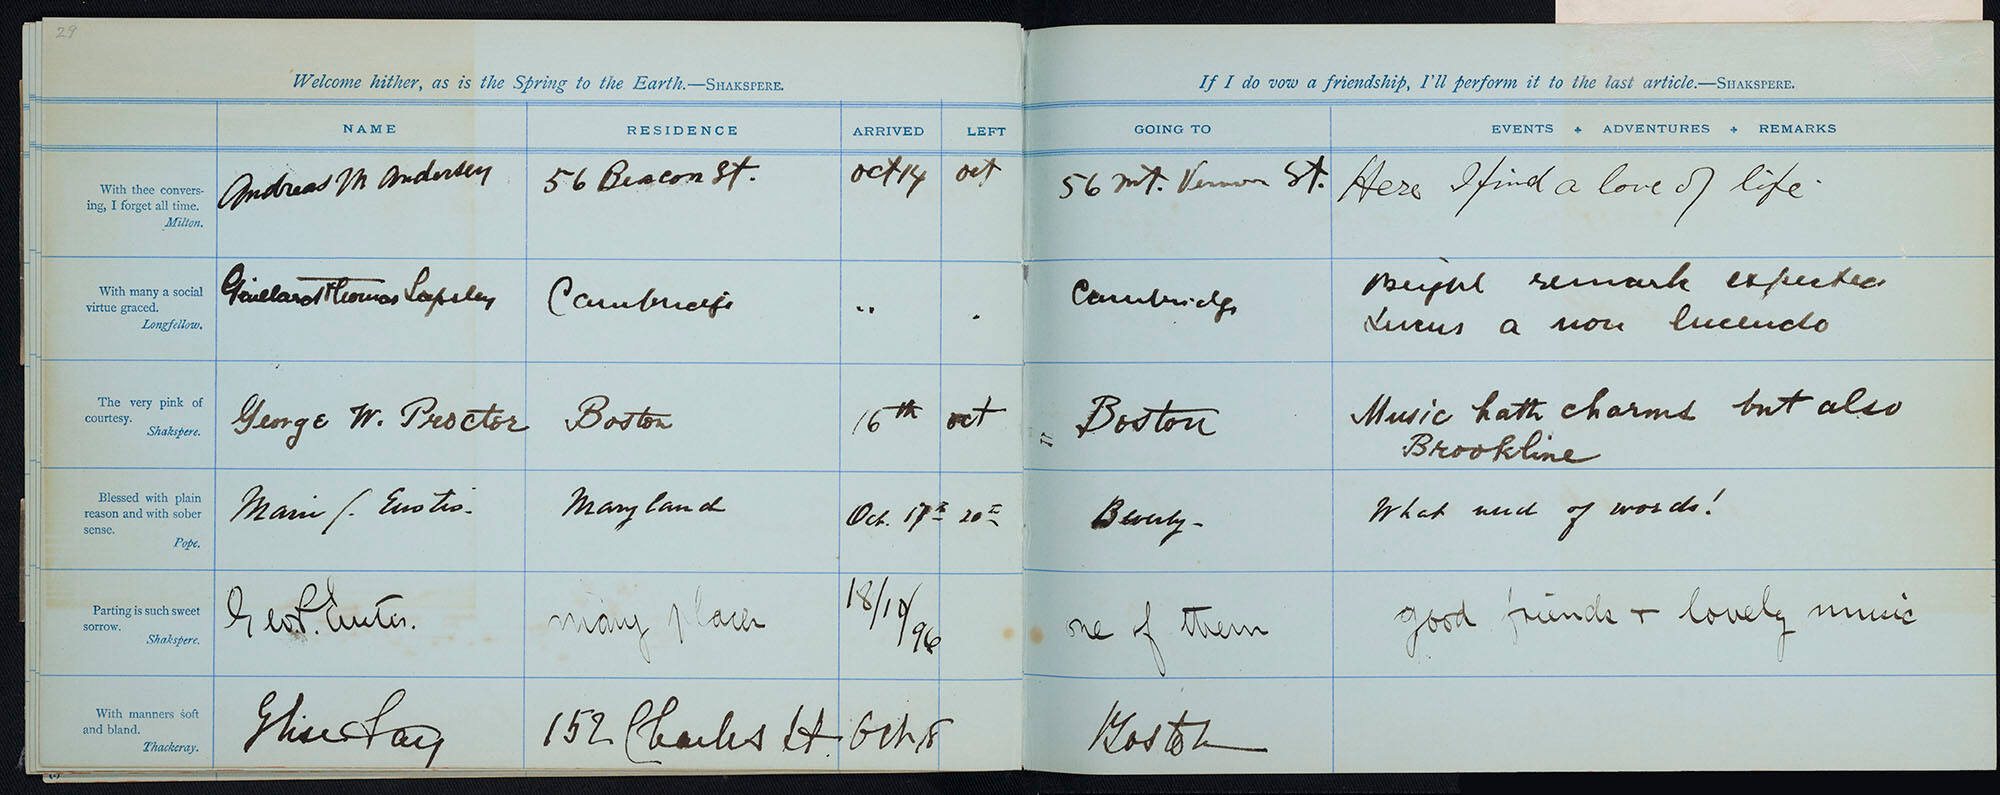 29
Welcome hither, as is the Spring to the Earth.—SHAKSPERE.
If I do vow a friendship, I'll perform it to the last article.—SHAKSPERE.
NAME RESIDENCE ARRIVED LEFT GOING TO EVENTS + ADVENTURES + REMARKS
With thee convers-
ing, I forget all time.
Milton.
Andreas M Andersen 56 Beacon St. Oct 14 Oct 56 Mt. Vernon St. Here I find a love of life.
With many a social
virtue graced.
Longfellow.
Gaillard Thomas Lapsley Cambridge " . Cambridge Bright remark expected
Lucus a non lucendo
The very pink of
courtesy.
Shakspere.
George W. Proctor Boston 16th Oct 17 Boston Music hath charms but also
Brookline
Blessed with plain
reason and with sober
sense.
Pope.
Marie Eustis. Maryland Oct. 17th 20th Beverly- What need of words!
Parting is such sweet
sorrow.
Shakspere.
Geo. Eustis. many places 18/10/96 one of them good friends + lovely music
With manners soft
and bland.
Thackeray.
Elise Fay 152 Charles St. Oct 18 Boston